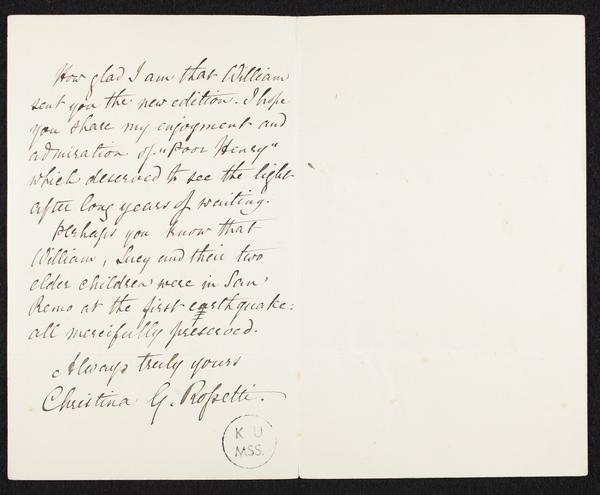 How glad I am that William
sent you the new edition. I hope
you share my enjoyment and
admiration of "Poor Henry"
which deserved to see the light
after long years of waiting.
Perhaps you know that
William, Lucy and their two
elder children were in San
Remo at the first earthquake:
all mercifully preserved.
Always truly yours
Christina G. Rossetti.
K U
MSS.